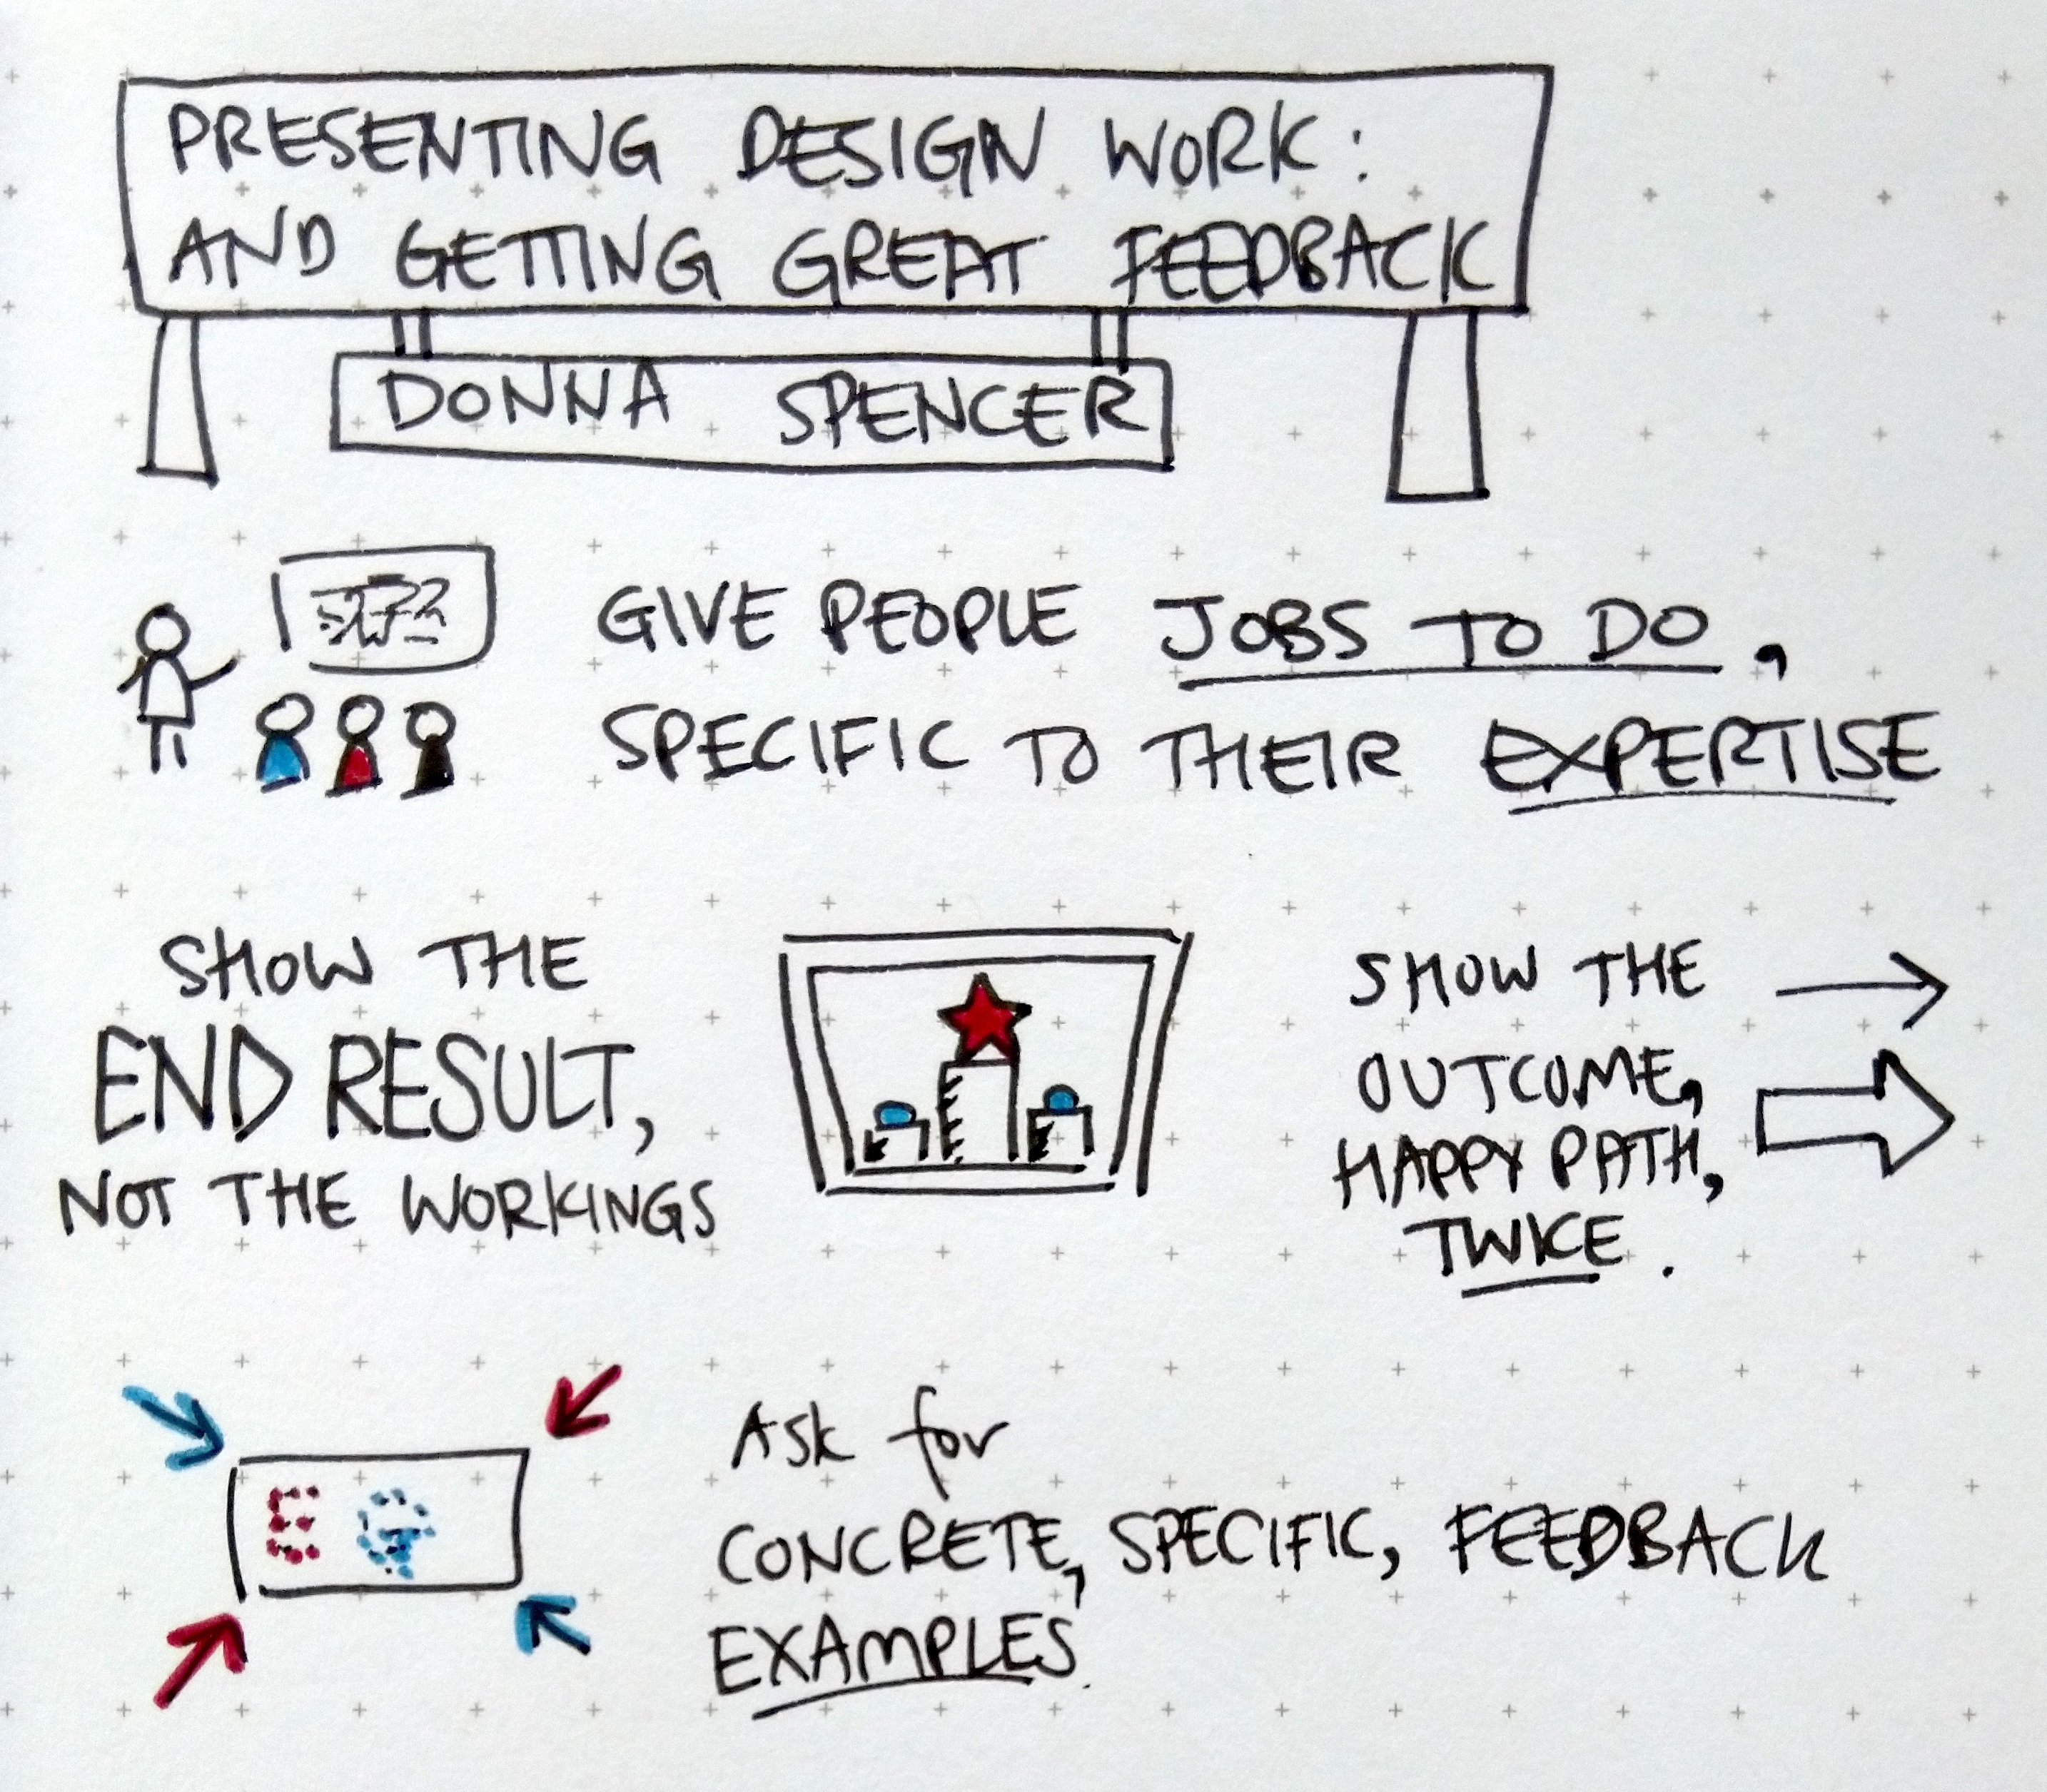 PRESENTING DESIGN WORK:
AND GETTING GREAT FEEDBACK
DONNA SPENCER
GIVE PEOPLE JOBS TO DO,
SPECIFIC TO THEIR EXPERTISE
SHOW THE
END RESULT,
NOT THE WORKINGS
SHOW THE
OUTCOME,
HAPPY PATH,
TWICE.
EG
Ask for
CONCRETE, SPECIFIC, FEEDBACK
EXAMPLES.